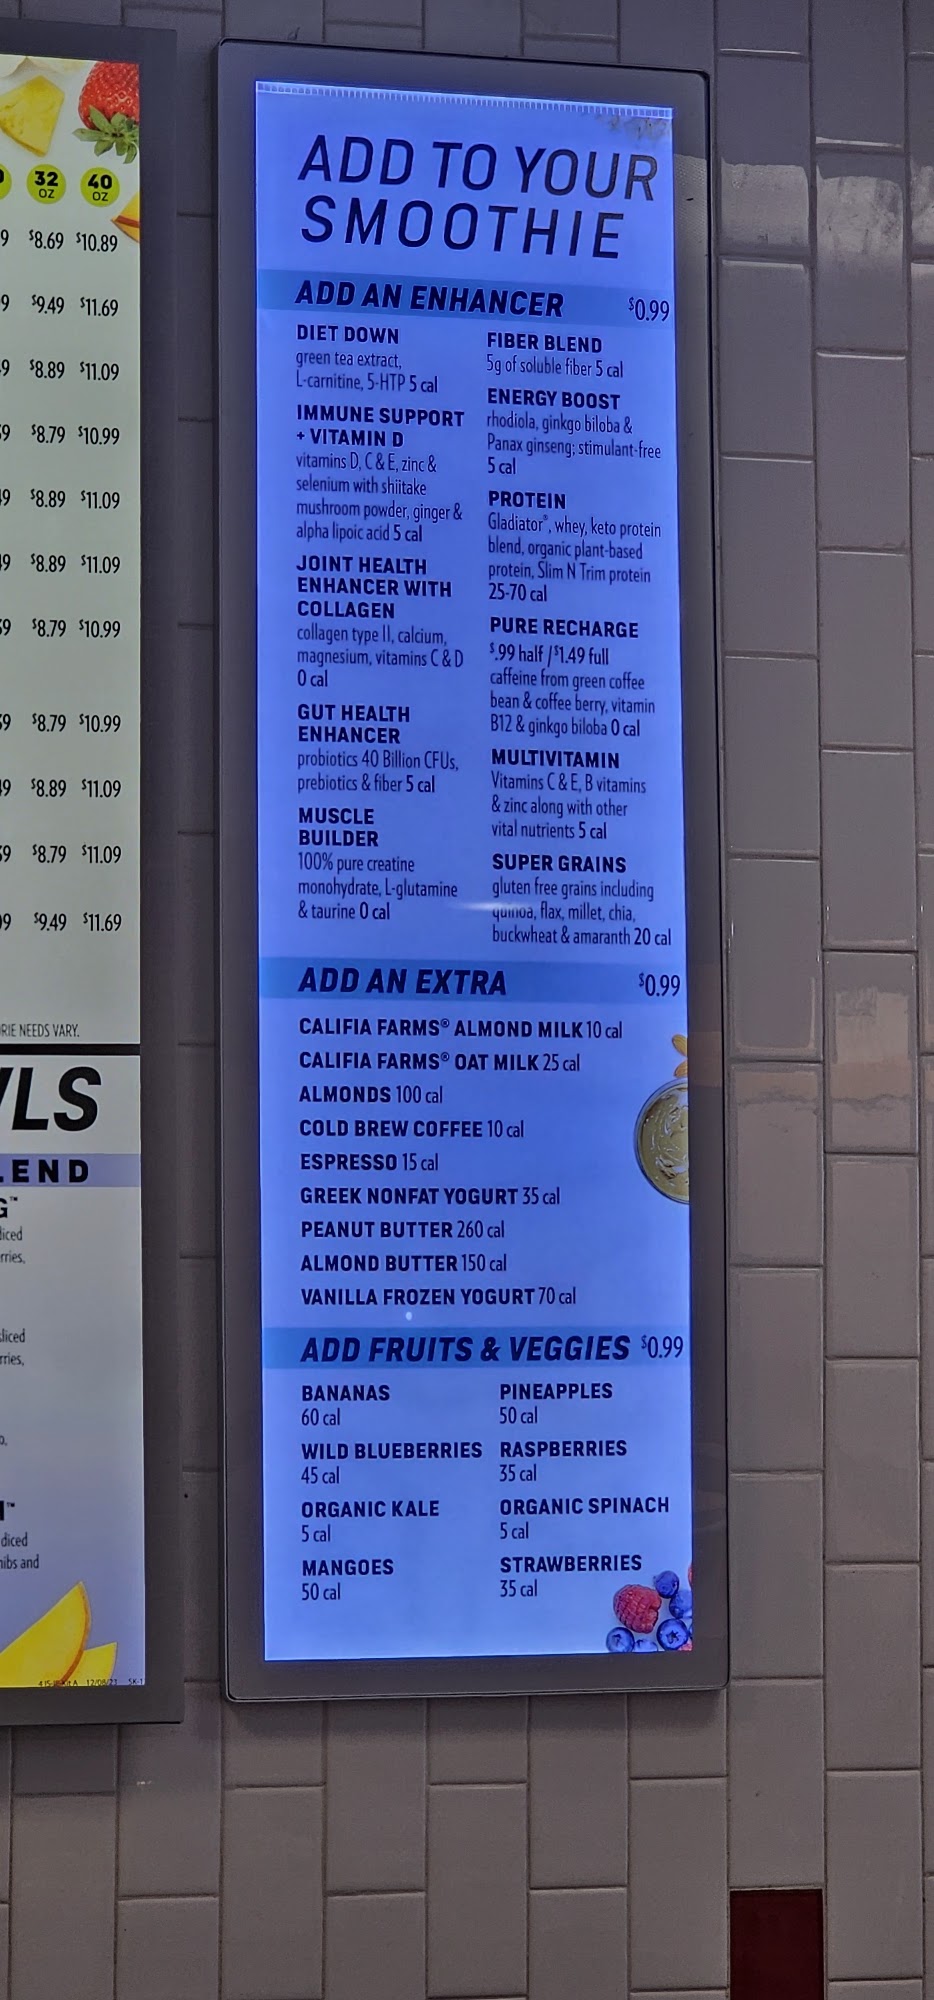 32 OZ 40 OZ
9 $8.69 $10.89
9 $9.49 $11.69
9 $8.89 $11.09
9 $8.79 $10.99
9 $8.89 $11.09
9 $8.89 $11.09
9 $8.79 $10.99
9 $8.79 $10.99
9 $8.89 $11.09
9 $8.79 $11.09
9 $9.49 $11.69
RIE NEEDS VARY.
LS
END
G™
diced
rries,
sliced
rries,
diced
nibs and
ADD TO YOUR
SMOOTHIE
ADD AN ENHANCER $0.99
DIET DOWN
green tea extract,
L-carnitine, 5-HTP 5 cal
IMMUNE SUPPORT
+ VITAMIN D
vitamins D, C & E, zinc &
selenium with shiitake
mushroom powder, ginger &
alpha lipoic acid 5 cal
JOINT HEALTH
ENHANCER WITH
COLLAGEN
collagen type II, calcium,
magnesium, vitamins C & D
0 cal
GUT HEALTH
ENHANCER
probiotics 40 Billion CFUs,
prebiotics & fiber 5 cal
MUSCLE
BUILDER
100% pure creatine
monohydrate, L-glutamine
& taurine 0 cal
FIBER BLEND
5g of soluble fiber 5 cal
ENERGY BOOST
rhodiola, ginkgo biloba &
Panax ginseng; stimulant-free
5 cal
PROTEIN
Gladiator®, whey, keto protein
blend, organic plant-based
protein, Slim N Trim protein
25-70 cal
PURE RECHARGE
$.99 half / $1.49 full
caffeine from green coffee
bean & coffee berry, vitamin
B12 & ginkgo biloba 0 cal
MULTIVITAMIN
Vitamins C & E, B vitamins
& zinc along with other
vital nutrients 5 cal
SUPER GRAINS
gluten free grains including
quinoa, flax, millet, chia,
buckwheat & amaranth 20 cal
ADD AN EXTRA $0.99
CALIFIA FARMS® ALMOND MILK 10 cal
CALIFIA FARMS® OAT MILK 25 cal
ALMONDS 100 cal
COLD BREW COFFEE 10 cal
ESPRESSO 15 cal
GREEK NONFAT YOGURT 35 cal
PEANUT BUTTER 260 cal
ALMOND BUTTER 150 cal
VANILLA FROZEN YOGURT 70 cal
ADD FRUITS & VEGGIES $0.99
BANANAS
60 cal
WILD BLUEBERRIES
45 cal
ORGANIC KALE
5 cal
MANGOES
50 cal
PINEAPPLES
50 cal
RASPBERRIES
35 cal
ORGANIC SPINACH
5 cal
STRAWBERRIES
35 cal